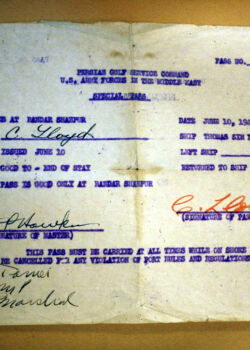 PASS NO.
PERSIAN GULF SERVICE COMMAND
U.S. ARMY FORCES IN THE MIDDLE EAST
SPECIAL PASS
AT BANDAR SHAHPUR
DATE JUNE 10, 19
C. Lloyd
SHIP THOMAS SIM
ISSUED JUNE 10
LEFT SHIP
GOOD TO - END OF STAY
RETURNED TO SHIP
PASS IS GOOD ONLY AT BANDAR SHAHPUR
C. Ll
(SIGNATURE OF PA
NATURE OF MASTER)
THIS PASS MUST BE CARRIED AT ALL TIMES WHILE ON SHORE
BE CANCELLED FOR ANY VIOLATION OF PORT RULES AND REGULATIONS
MP
Marshal